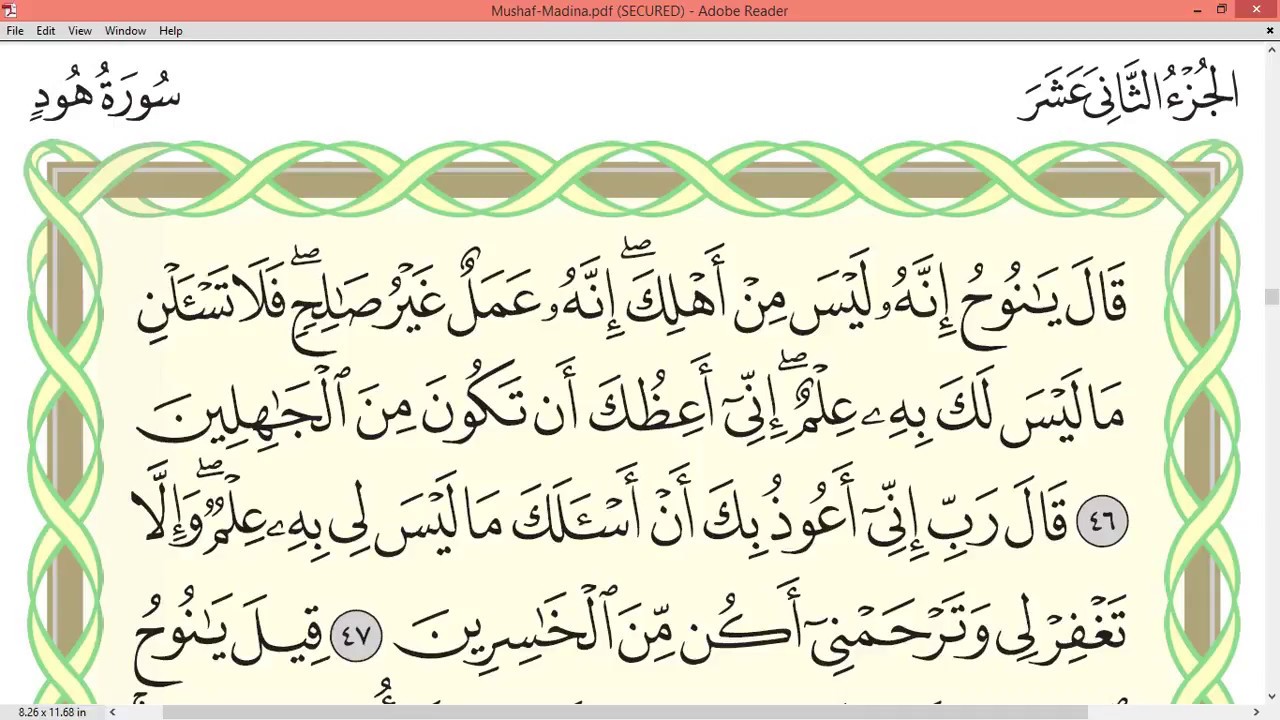 Mushaf-Madina.pdf (SECURED) - Adobe Reader
File Edit View Window Help
الجُزْءُ الثَّانِى عَشَرَ
سُورَةُ هُودٍ
قَالَ يَـٰنُوحُ إِنَّهُۥ لَيْسَ مِنْ أَهْلِكَ ۖ إِنَّهُۥ عَمَلٌ غَيْرُ صَـٰلِحٍ ۖ فَلَا تَسْـَٔلْنِ
مَا لَيْسَ لَكَ بِهِۦ عِلْمٌ ۖ إِنِّىٓ أَعِظُكَ أَن تَكُونَ مِنَ ٱلْجَـٰهِلِينَ
٤٦ قَالَ رَبِّ إِنِّىٓ أَعُوذُ بِكَ أَنْ أَسْـَٔلَكَ مَا لَيْسَ لِى بِهِۦ عِلْمٌ ۖ وَإِلَّا
تَغْفِرْ لِى وَتَرْحَمْنِىٓ أَكُن مِّنَ ٱلْخَـٰسِرِينَ ٤٧ قِيلَ يَـٰنُوحُ
8.26 x 11.68 in